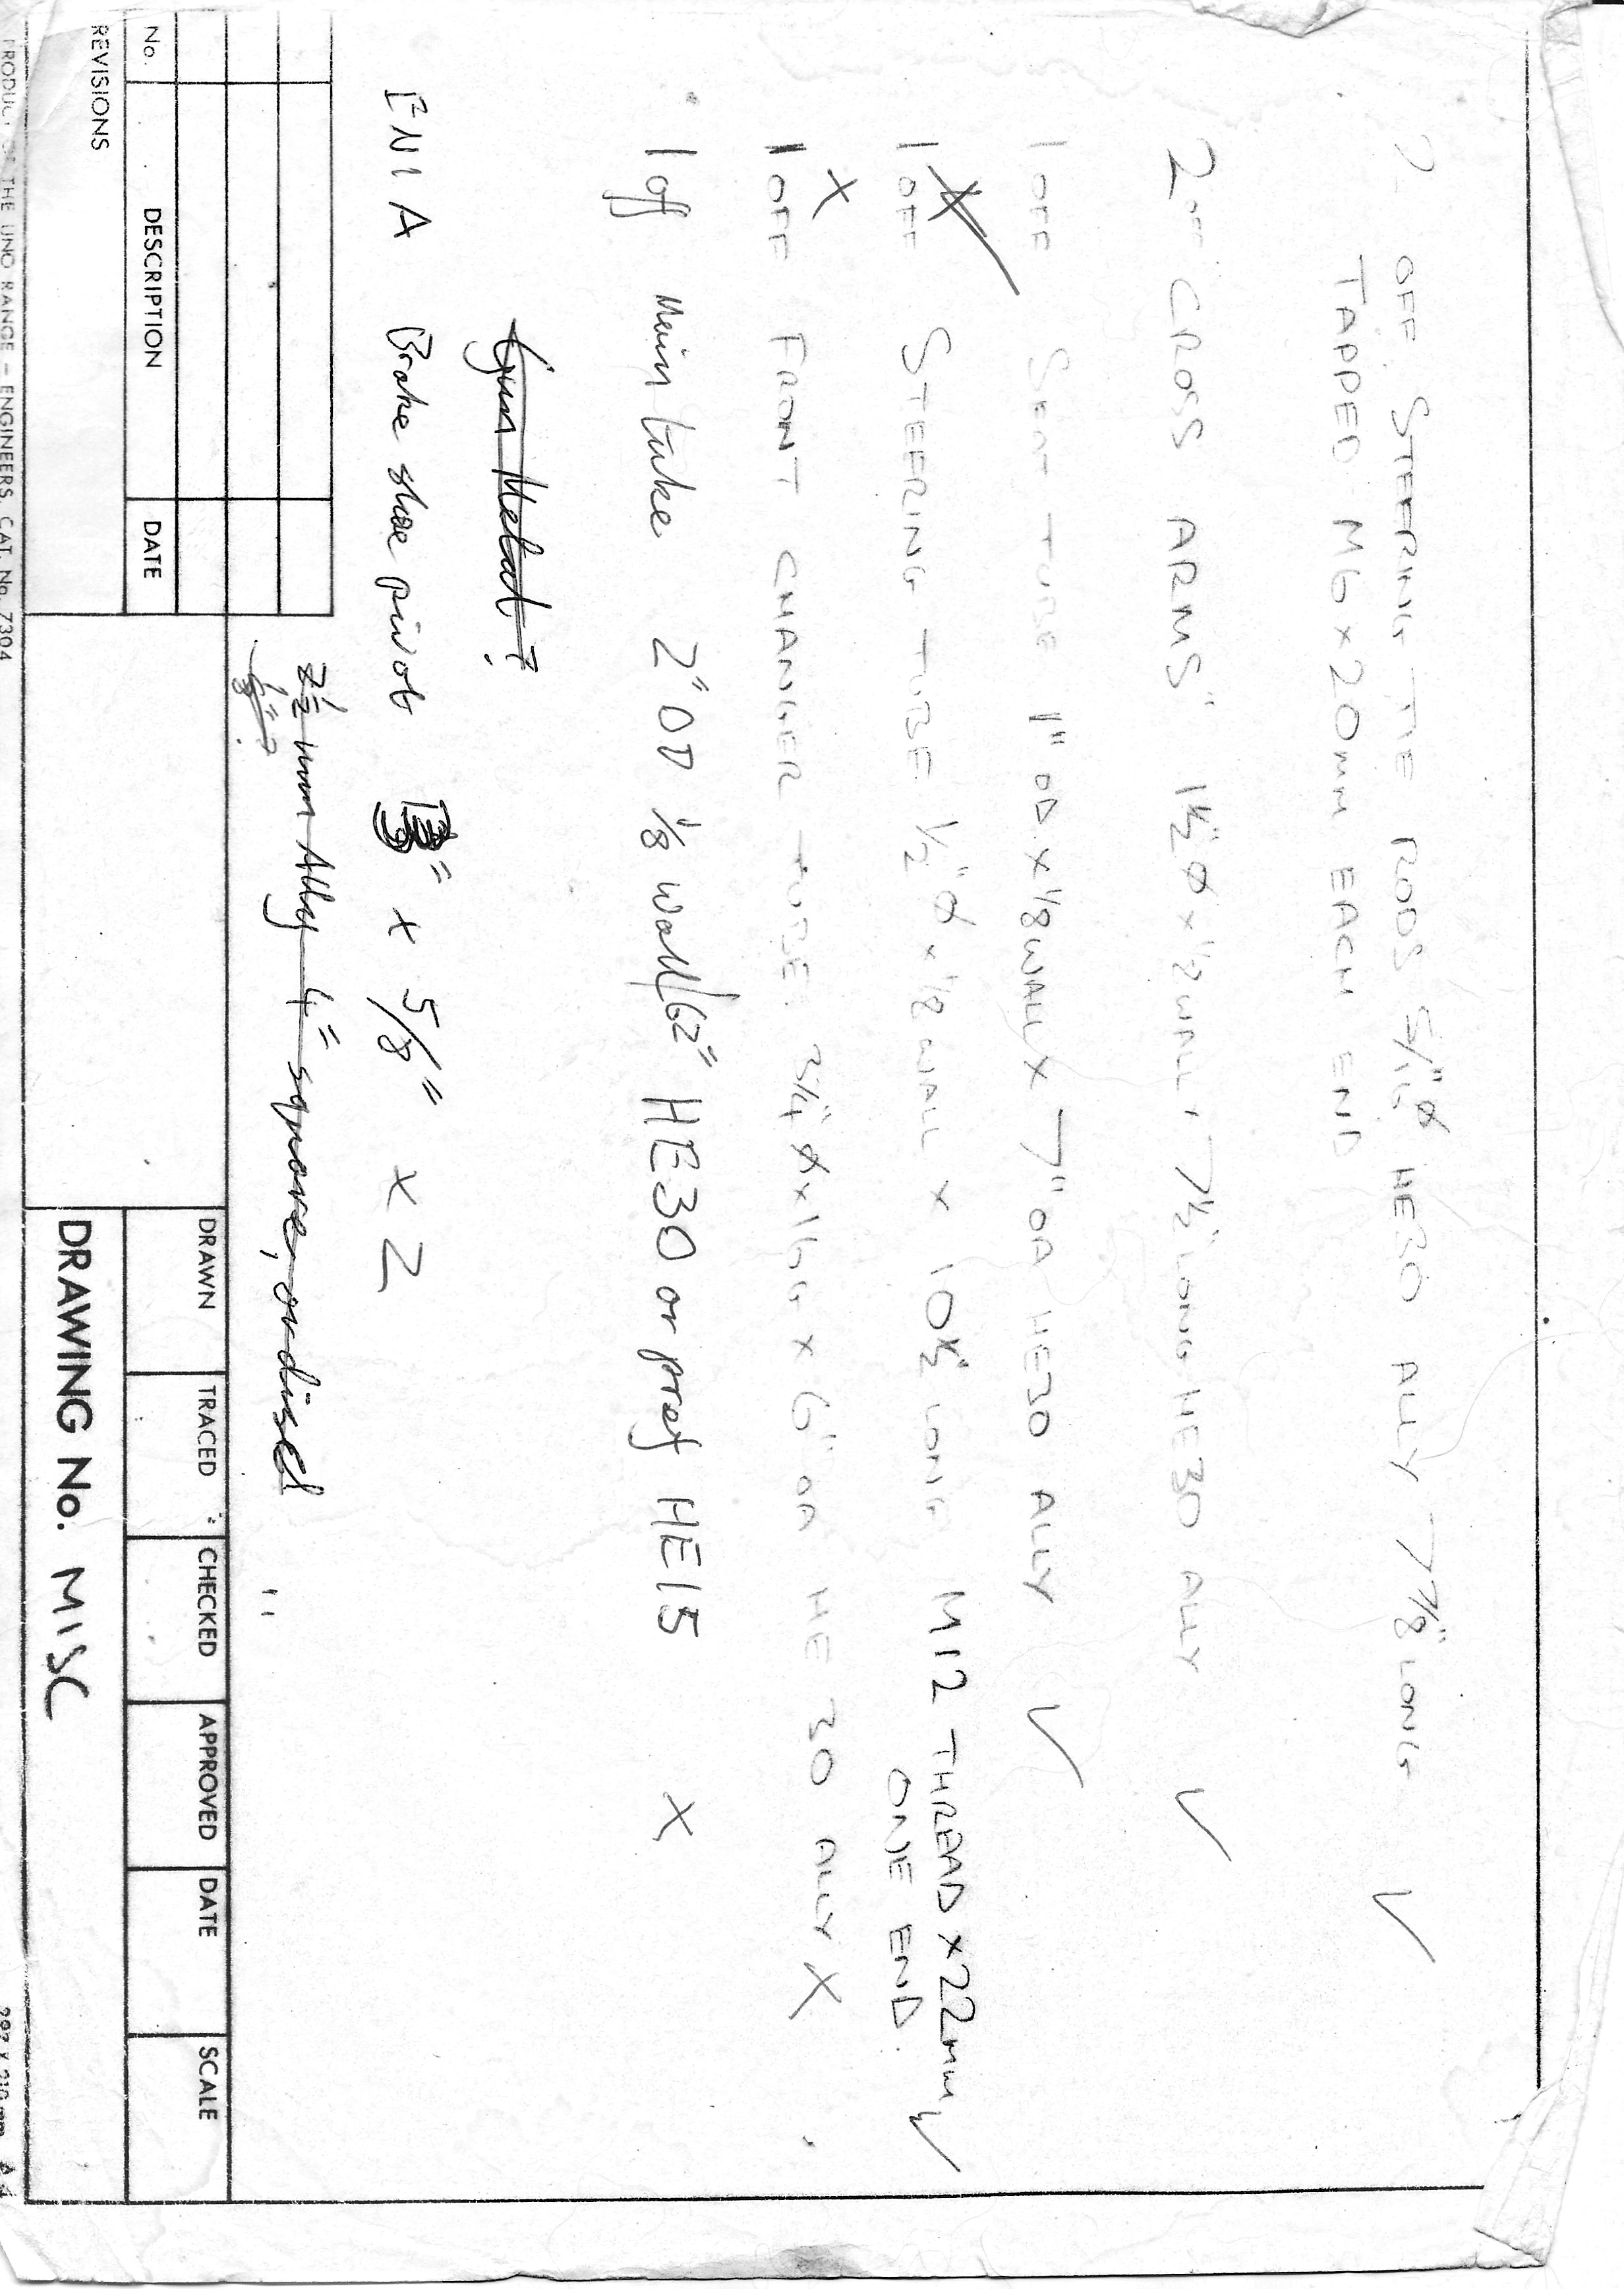 2 OFF STEERING TIE RODS 5/16"ø HE30 ALLY 7 7/8" LONG ✓
TAPPED M6 x 20mm EACH END
2 OFF CROSS ARMS 1½"ø x 1/2 WALL x 7½" LONG HE30 ALLY ✓
1 OFF SEAT TUBE 1" OD. x 1/8 WALL x 7" OA HE30 ALLY ✓
1 OFF STEERING TUBE 1/2"ø x 1/8 WALL x 10½" LONG M12 THREAD x 22mm ✓
ONE END
X
1 OFF FRONT CHANGER TUBE. 3/4"ø x 16G x 6" OA HE 30 ALLY X
1 off Main tube 2" OD 1/8 wall/62" HE30 or pref HE15 X
Gun Metal?
EN1A Brake shoe pivot " x 5/8" x 2
2½ mm Alloy 4" square, or disced
1/8"?
No. DESCRIPTION DATE
REVISIONS
DRAWN TRACED CHECKED APPROVED DATE SCALE
DRAWING No. MISC
PRODUCT OF THE UNO RANGE – ENGINEERS. CAT. No. 7304
297 x 210 mm A4